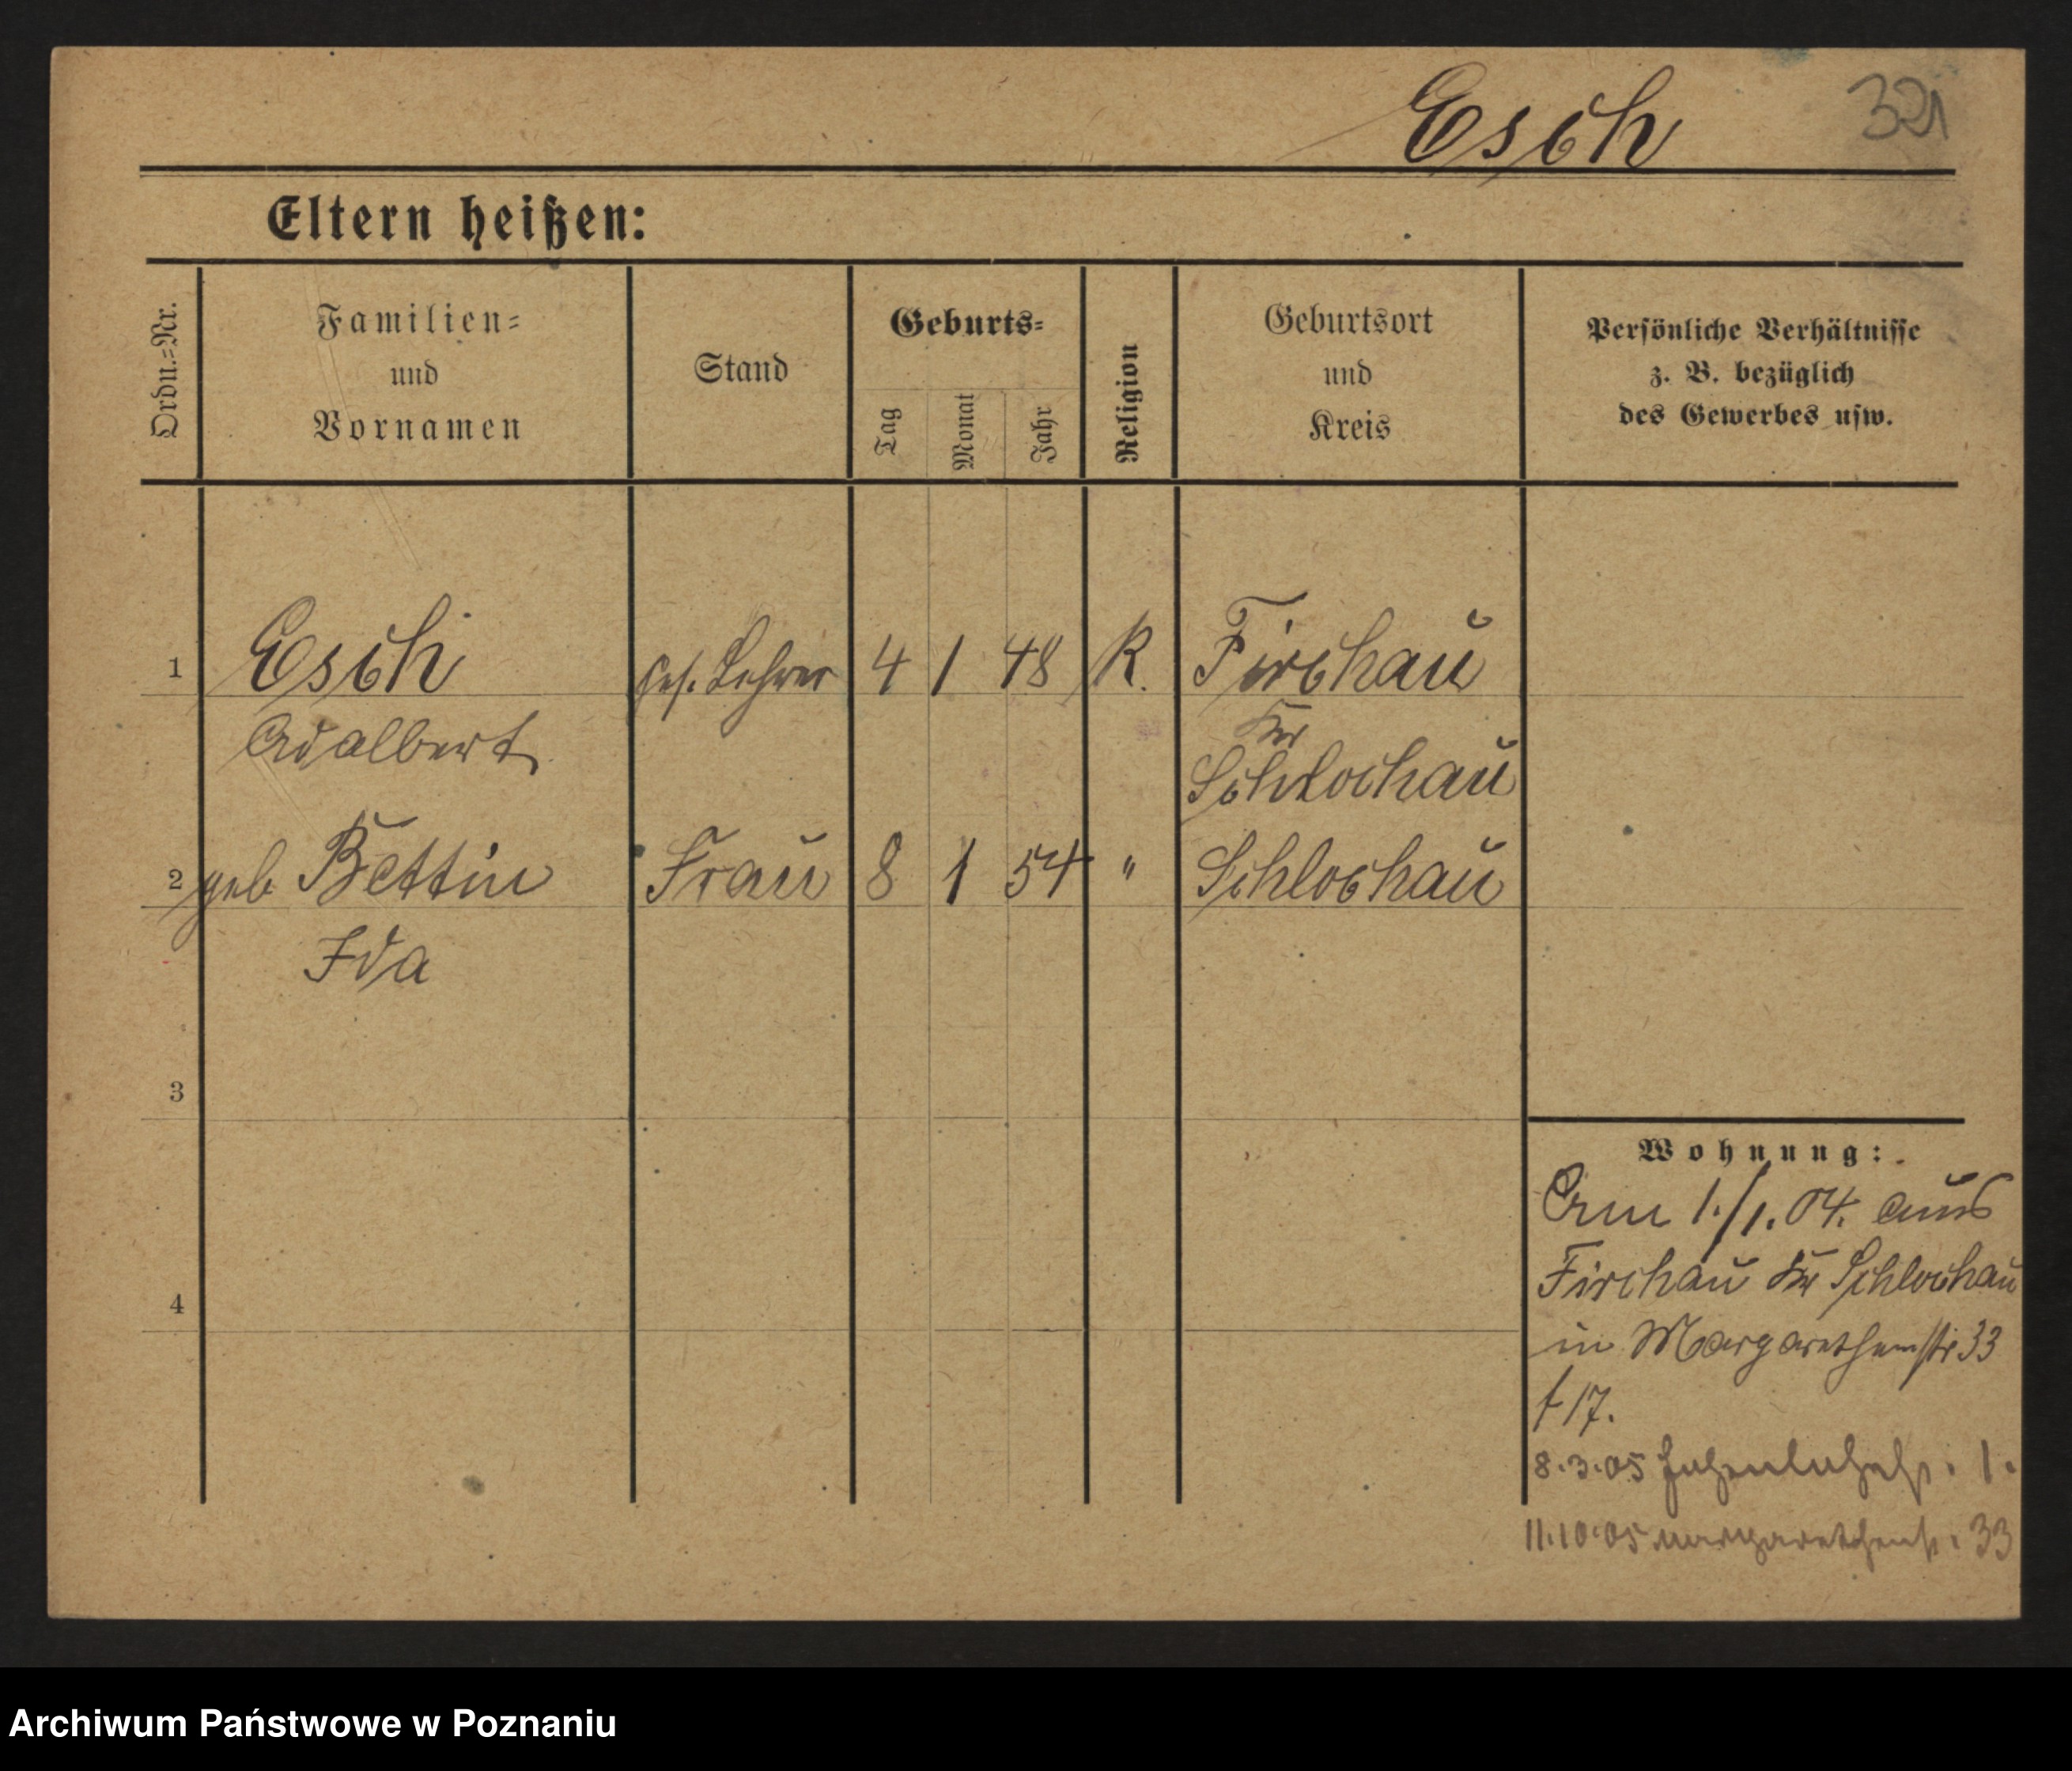 Esch 321
Eltern heißen:
Ordn.-Nr.
Familien-
und
Vornamen
Stand
Geburts-
Tag
Monat
Jahr
Religion
Geburtsort
und
Kreis
Persönliche Verhältnisse
z. B. bezüglich
des Gewerbes usw.
1 Esch Lehrer 4 1 48 K. Firchau
Adalbert Kr
Schlochau
2 geb Bettin Frau 8 1 54 " Schlochau
Ida
3
4
Wohnung:
Am 1./1. 04. aus
Firchau Kr Schlochau
in Margarethenstr 33
f 17.
8.3.05 1.
11.10.05 Margarethenstr. 33
Archiwum Państwowe w Poznaniu